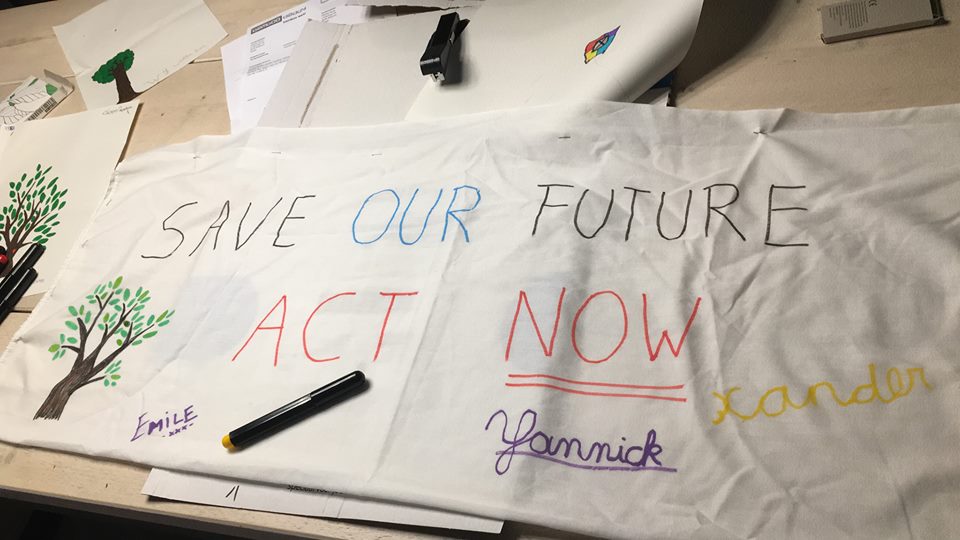 SAVE OUR FUTURE
ACT NOW
xander
EMILE
Yannick